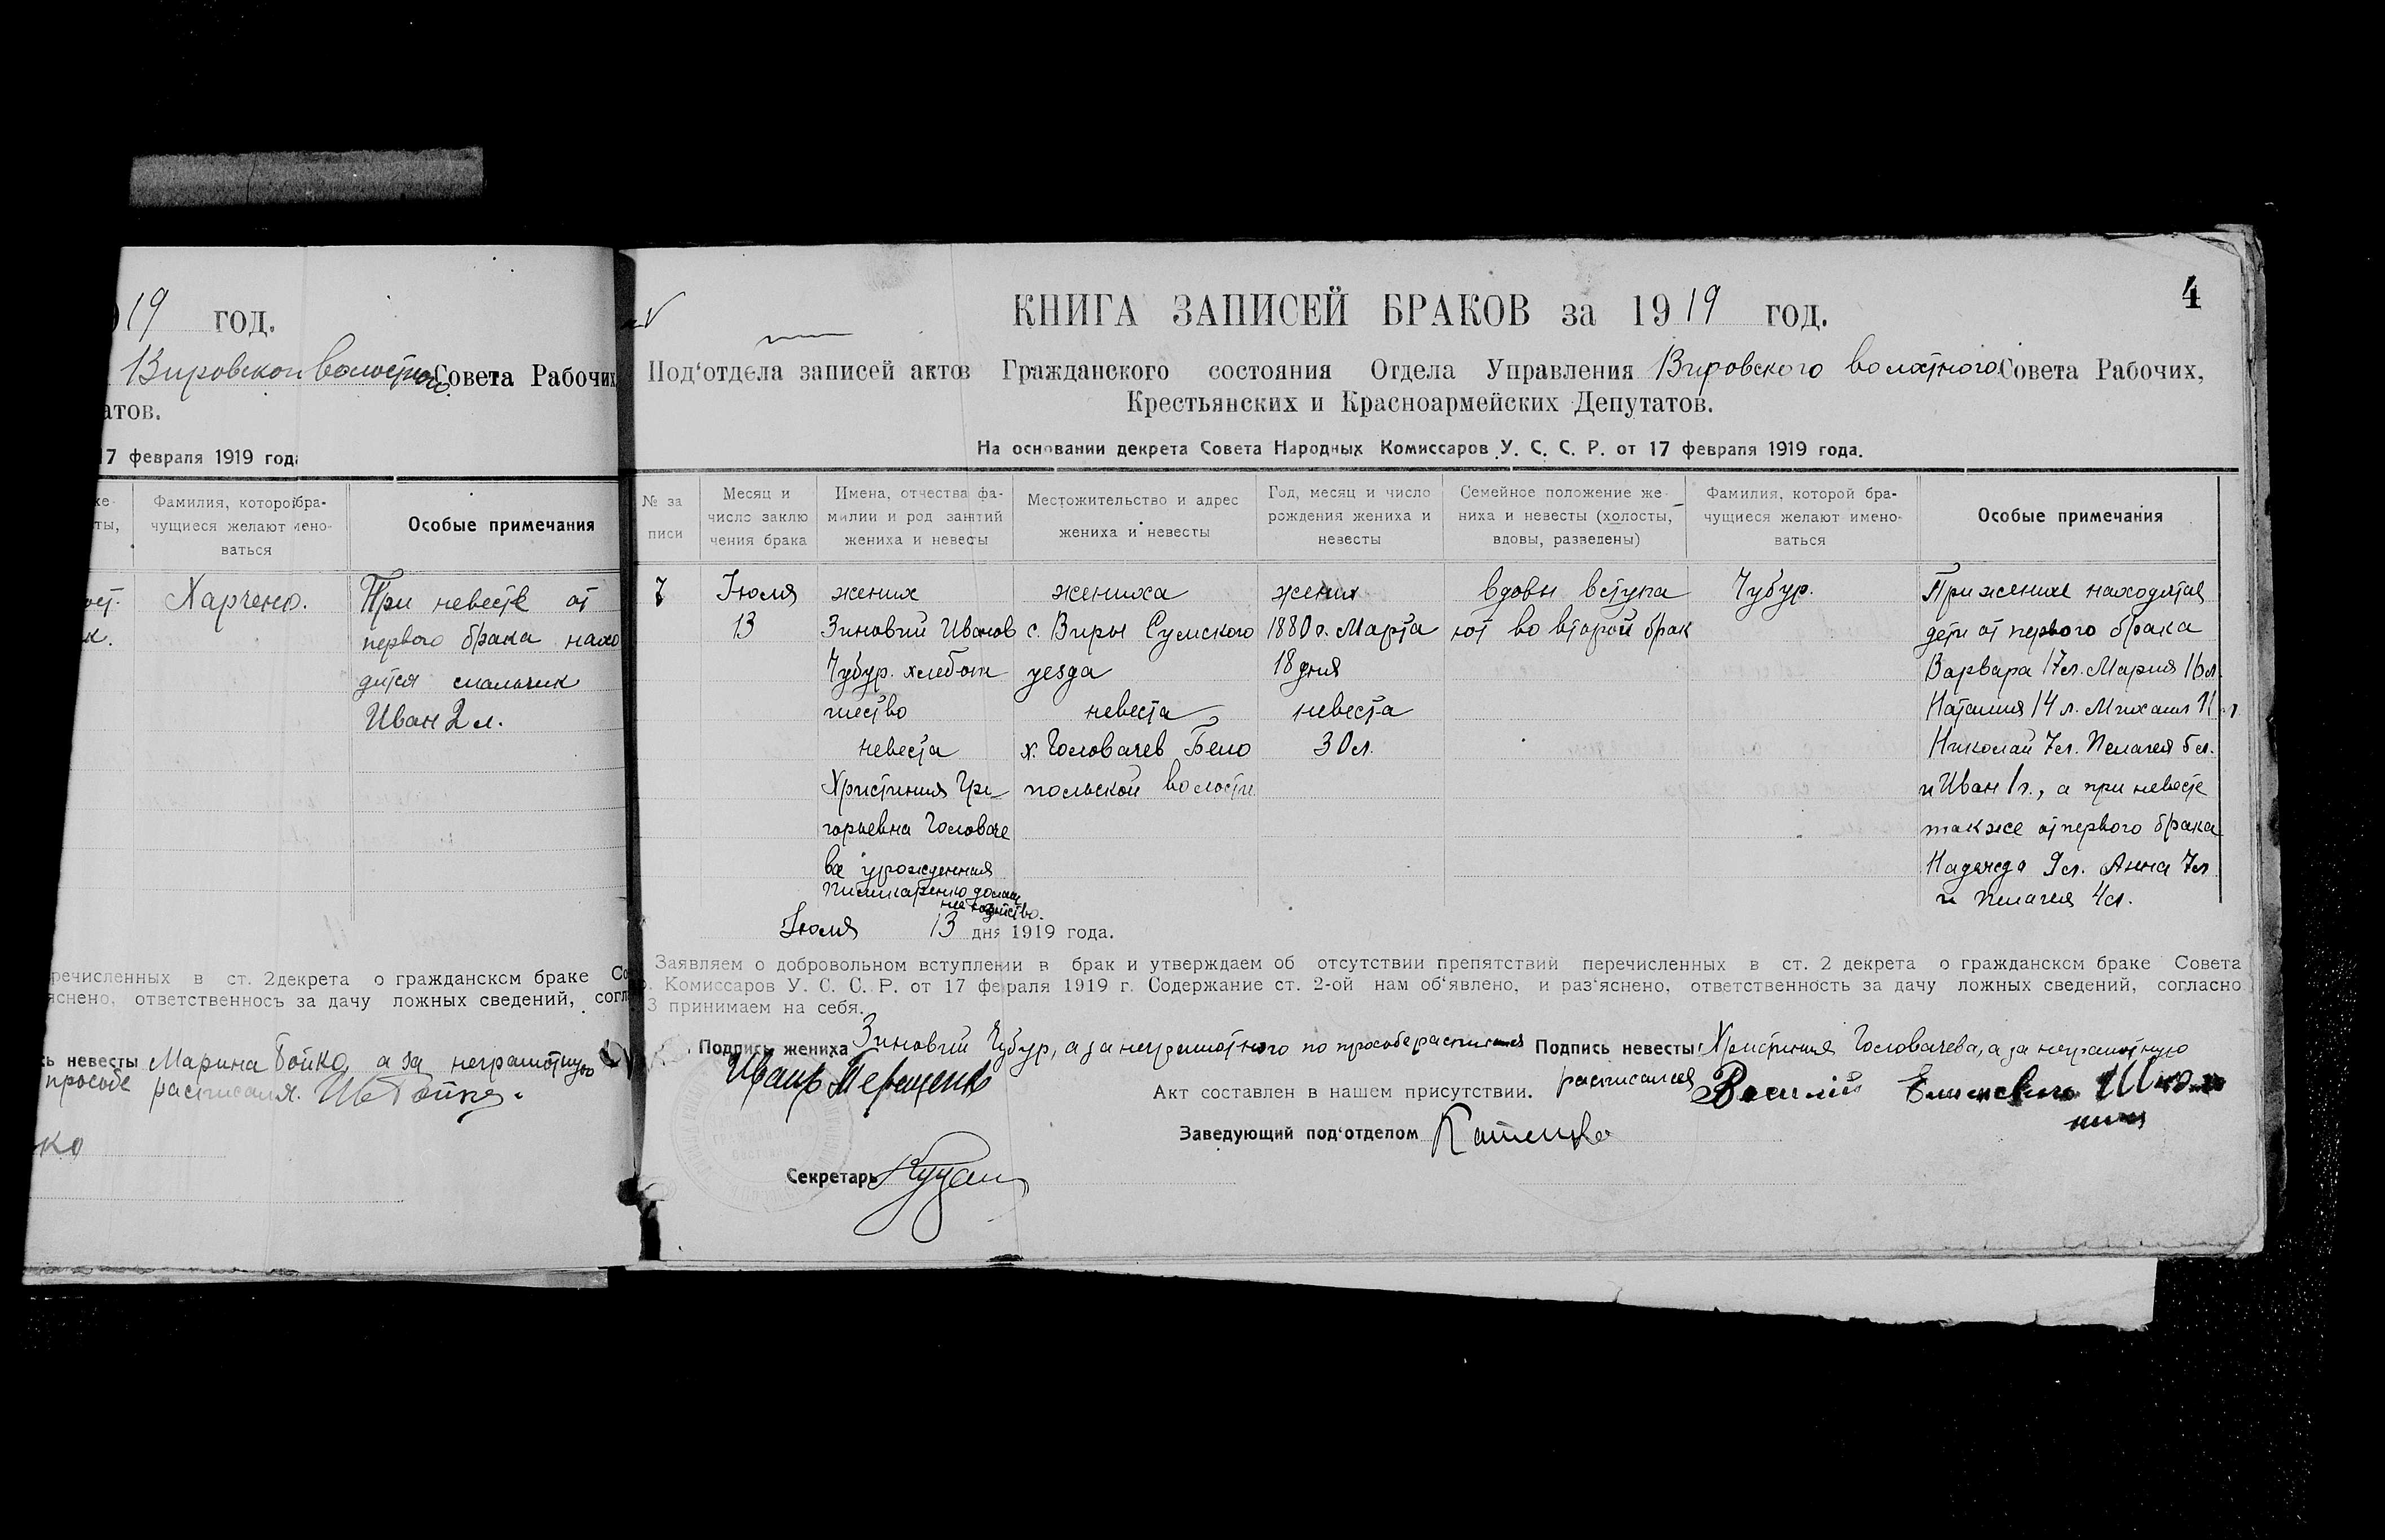 19 ГОД.
Вировской волостного Совета Рабочих
атов.
17 февраля 1919 года
Фамилия, которой бра-
чущиеся желают имено-
ваться
Особые примечания
Харченко.
При невесте от
первого брака нахо
дится мальчик
Иван 2 л.
речисленных в ст. 2 декрета о гражданском браке Со
яснено, ответственность за дачу ложных сведений, согл
ь невесты Марина Бойко, а за неграмотную
просьбе расписался. Ив Бойко.
ко
4
КНИГА ЗАПИСЕЙ БРАКОВ за 1919 год.
Под'отдела записей актов Гражданского состояния Отдела Управления Вировского волостного Совета Рабочих,
Крестьянских и Красноармейских Депутатов.
На основании декрета Совета Народных Комиссаров У. С. С. Р. от 17 февраля 1919 года.
№ за
писи
Месяц и
число заклю
чения брака
Имена, отчества фа-
милии и род занятий
жениха и невесты
Местожительство и адрес
жениха и невесты
Год, месяц и число
рождения жениха и
невесты
Семейное положение же-
ниха и невесты (холосты,
вдовы, разведены)
Фамилия, которой бра-
чущиеся желают имено-
ваться
Особые примечания
7
Июля
13
жених
Зиновий Иванов
Чубур. хлебопа
шество
невеста
Христиния Гри
горьевна Головаче
ва урожденная
домаш
нее хозяйство.
жениха
с. Виры Сумского
уезда
невеста
х. Головачев Бело
польской волости
жених
1880 г. Марта
18 дня
невеста
30 л.
вдовы вступа
ют во второй брак
Чубур.
При женихе находятся
дети от первого брака
Варвара 17 л. Мария 16 л.
Наталия 14 л. Михаил 11 л
Николай 7 л. Пелагея 5 л.
и Иван 1 г., а при невесте
также от первого брака
Надежда 9 л. Анна 7 л
и Пелагея 4 л.
Июля 13 дня 1919 года.
Заявляем о добровольном вступлении в брак и утверждаем об отсутствии препятствий перечисленных в ст. 2 декрета о гражданском браке Совета
Комиссаров У. С. С. Р. от 17 февраля 1919 г. Содержание ст. 2-ой нам об'явлено, и раз'яснено, ответственность за дачу ложных сведений, согласно
3 принимаем на себя.
Подпись жениха Зиновий Чубур, а за неграмотного по просьбе расписался
Иванъ Терещенко
Подпись невесты Христиния Головачева, а за неграмотную
расписался Василій
Акт составлен в нашем присутствии.
Заведующий под'отделом
Секретарь